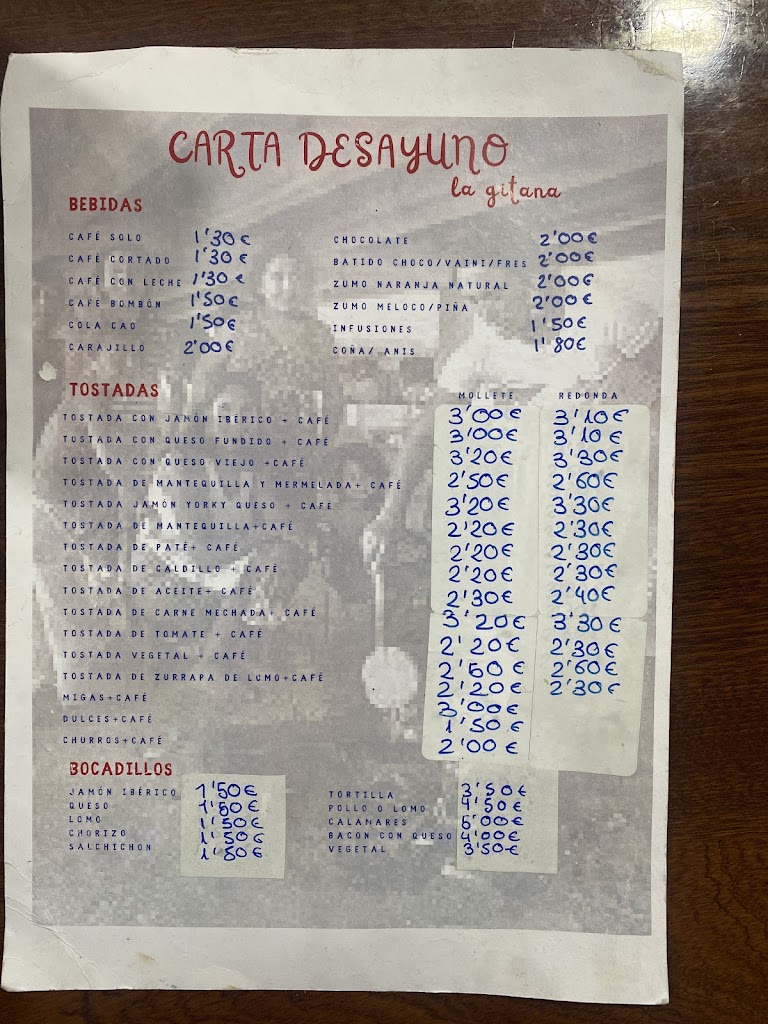 CARTA DESAYUNO
la gitana
BEBIDAS
CAFÉ SOLO 1'30€
CAFÉ CORTADO 1'30€
CAFÉ CON LECHE 1'30€
CAFÉ BOMBÓN 1'50€
COLA CAO 1'50€
CARAJILLO 2'00€
CHOCOLATE 2'00€
BATIDO CHOCO/VAINI/FRES 2'00€
ZUMO NARANJA NATURAL 2'00€
ZUMO MELOCO/PIÑA 2'00€
INFUSIONES 1'50€
COÑA/ ANIS 1'80€
TOSTADAS MOLLETE REDONDA
TOSTADA CON JAMÓN IBÉRICO + CAFÉ 3'00€ 3'10€
TOSTADA CON QUESO FUNDIDO + CAFÉ 3'00€ 3'10€
TOSTADA CON QUESO VIEJO +CAFÉ 3'20€ 3'30€
TOSTADA DE MANTEQUILLA Y MERMELADA+ CAFÉ 2'50€ 2'60€
TOSTADA JAMÓN YORKY QUESO + CAFÉ 3'20€ 3'30€
TOSTADA DE MANTEQUILLA+CAFÉ 2'20€ 2'30€
TOSTADA DE PATÉ+ CAFÉ 2'20€ 2'30€
TOSTADA DE CALDILLO + CAFÉ 2'20€ 2'30€
TOSTADA DE ACEITE+ CAFÉ 2'30€ 2'40€
TOSTADA DE CARNE MECHADA+ CAFÉ 3'20€ 3'30€
TOSTADA DE TOMATE + CAFÉ 2'20€ 2'30€
TOSTADA VEGETAL + CAFÉ 2'50€ 2'60€
TOSTADA DE ZURRAPA DE LOMO+CAFÉ 2'20€ 2'30€
MIGAS+CAFÉ 3'00€
DULCES+CAFÉ 1'50€
CHURROS+CAFÉ 2'00€
BOCADILLOS
JAMÓN IBÉRICO 1'50€
QUESO 1'50€
LOMO 1'50€
CHORIZO 1'50€
SALCHICHON 1'50€
TORTILLA 3'50€
POLLO O LOMO 4'50€
CALAMARES 5'00€
BACON CON QUESO 4'00€
VEGETAL 3'50€